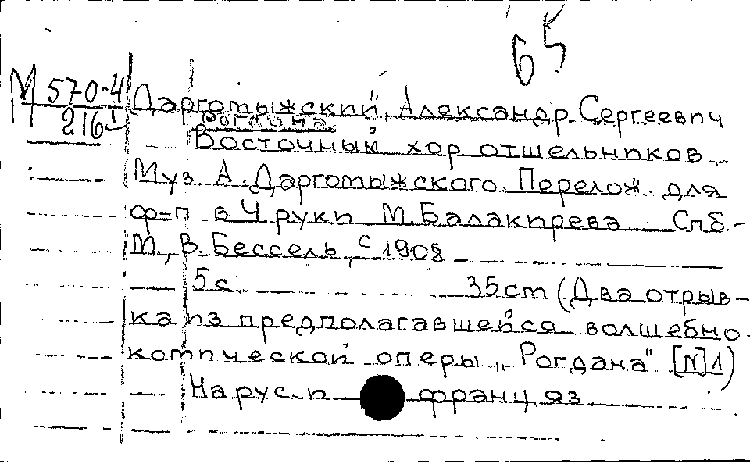 65
М 570-4
216
Даргомыжский, Александр Сергеевич
Рогдана
Восточный хор отшельников.
Муз. А. Даргомыжского. Перелож. для
ф-п. в 4 руки М. Балакирева. Спб.-
М., В. Бессель, с 1908
5 с. 35 cm (Два отрыв-
ка из предполагавшейся волшебно-
комической оперы „Рогдана" [N]1)
На рус. и франц. яз.